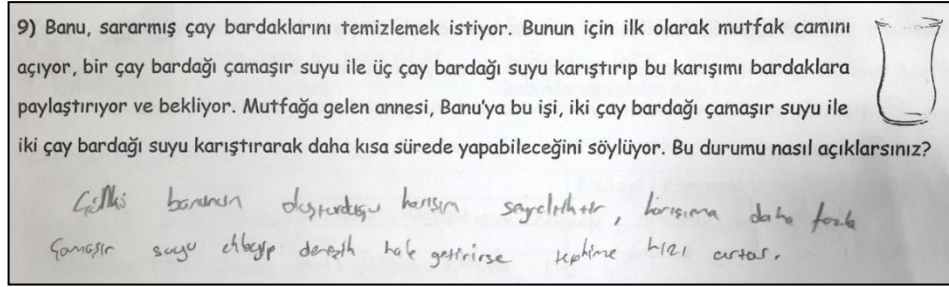 9) Banu, sararmış çay bardaklarını temizlemek istiyor. Bunun için ilk olarak mutfak camını
açıyor, bir çay bardağı çamaşır suyu ile üç çay bardağı suyu karıştırıp bu karışımı bardaklara
paylaştırıyor ve bekliyor. Mutfağa gelen annesi, Banu'ya bu işi, iki çay bardağı çamaşır suyu ile
iki çay bardağı suyu karıştırarak daha kısa sürede yapabileceğini söylüyor. Bu durumu nasıl açıklarsınız?
Çünkü banunun oluşturduğu karışım seyreltiktir, karışıma daha fazla
Çamaşır suyu ekleyip derişik hale getirirse tepkime hızı artar.